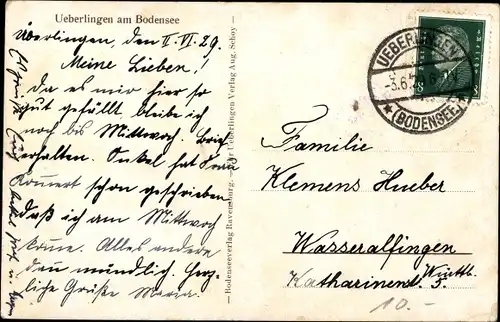 Ueberlingen am Bodensee
Überlingen, den II. VI. 29.
Meine Lieben!
Da es mir hier so
gut gefällt bleibe ich
noch bis Mittwoch. Brief
erhalten. Onkel hat Frau
schon geschrieben
daß ich am Mittwoch
komme. Alles andere
dann mündlich. Herz-
liche Grüße Maria.
Bodenseeverlag Ravensburg.
Ueberlingen Verlag Aug. Schoy
UEBERLINGEN
-3.6.
(BODENSEE)
Familie
Klemens Hueber
Wasseralfingen
Württ.
Katharinenst. 5.
10.-